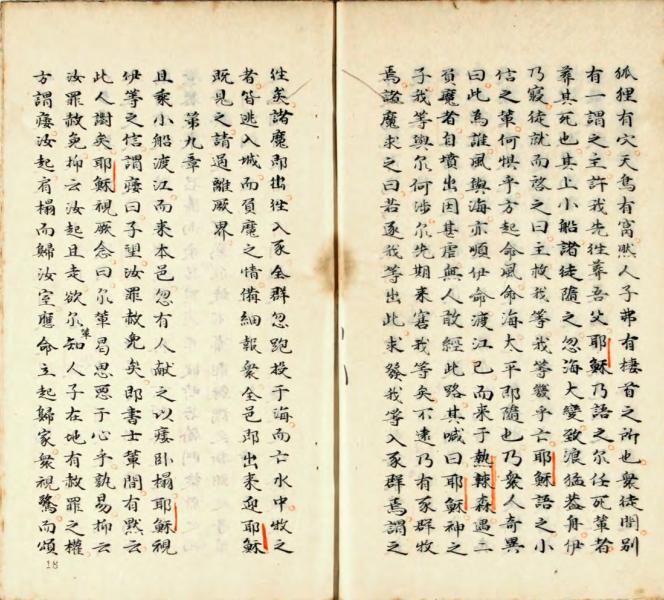 狐狸有穴天鳥有窩然人子弗有棲首之所也眾徒間別
有一謂之主許我先往葬吾父耶穌乃語之尔任死輩者
葬其死也其上小船諸徒隨之忽海大變致浪猛蓋舟伊
乃寢徒就而啓之曰主救我等我等幾乎亡耶穌語之小
信之輩何惧乎方起命風命海太平即隨也乃衆人奇異
曰此為誰風與海亦順伊命渡江已而来于熱辣森遇二
負魔者自墳出因甚虐無人敢經此路其喊曰耶穌神之
子我等與尔何涉尔先期来害我等矣不遠乃有豕群牧
焉諸魔求之曰若逐我等出此求發我等入豕群焉謂之
往矣諸魔即出往入豕全群忽跑投于海而亡水中牧之
者皆逃入城而負魔之情備細報衆全邑即出来迎耶穌
既見之請過離厥界
第九章
且乘小船渡江而来本邑忽有人献之以癱卧榻耶穌視
伊等之信謂癱曰子望汝罪赦免矣即書士輩間有黙云
此人謝矣耶穌視厥念曰尔輩曷思惡于心乎孰易抑云
汝罪赦免抑云汝起且走欲尔等知人子在地有赦罪之權
方謂癱汝起肩榻而歸汝室應命立起歸家衆視驚而頌
18